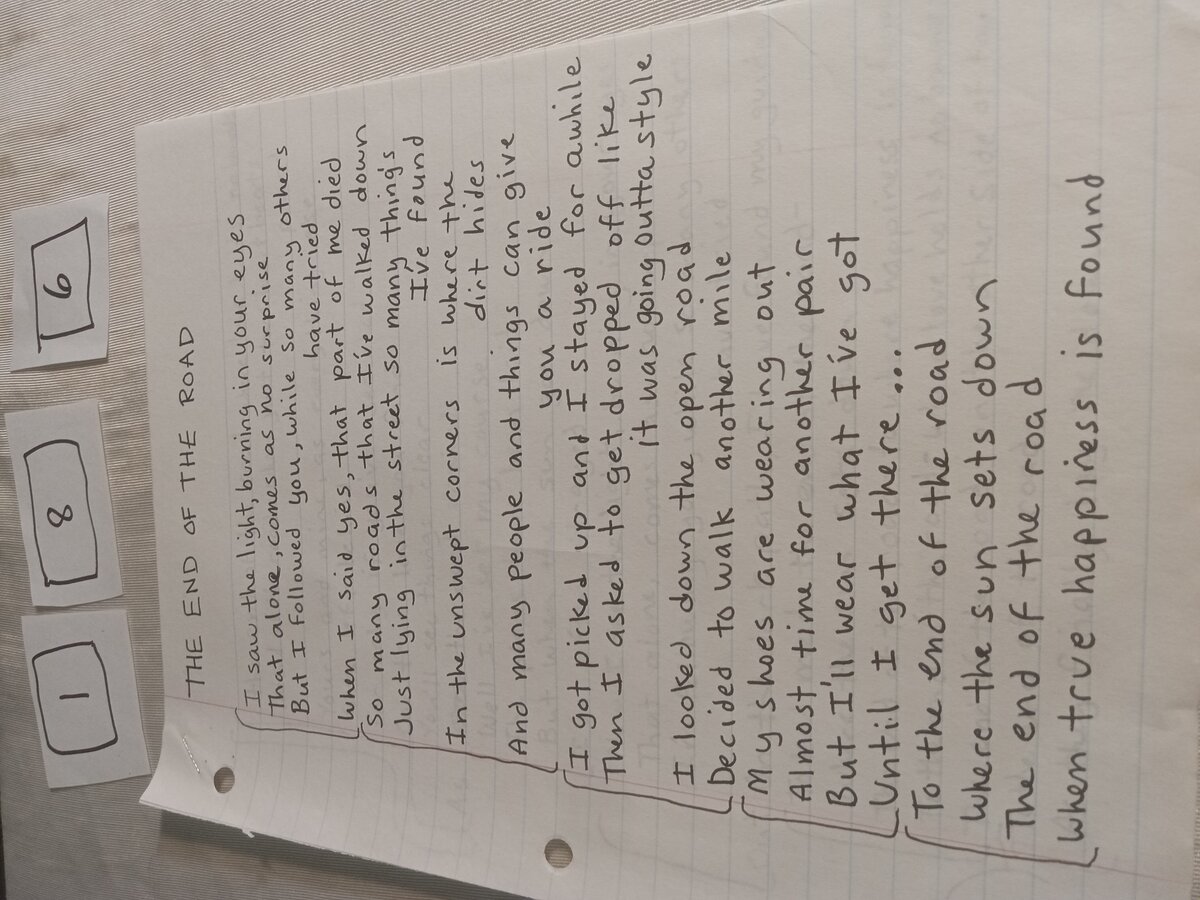 1 8 6
THE END OF THE ROAD
I saw the light, burning in your eyes
That alone, comes as no surprise
But I followed you, while so many others
have tried
When I said yes, that part of me died
So many roads that I've walked down
Just lying in the street so many thing's
I've found
In the unswept corners is where the
dirt hides
And many people and things can give
you a ride
I got picked up and I stayed for awhile
Then I asked to get dropped off like
it was going outta style
I looked down the open road
Decided to walk another mile
My shoes are wearing out
Almost time for another pair
But I'll wear what I've got
Until I get there...
To the end of the road
Where the sun sets down
The end of the road
When true happiness is found